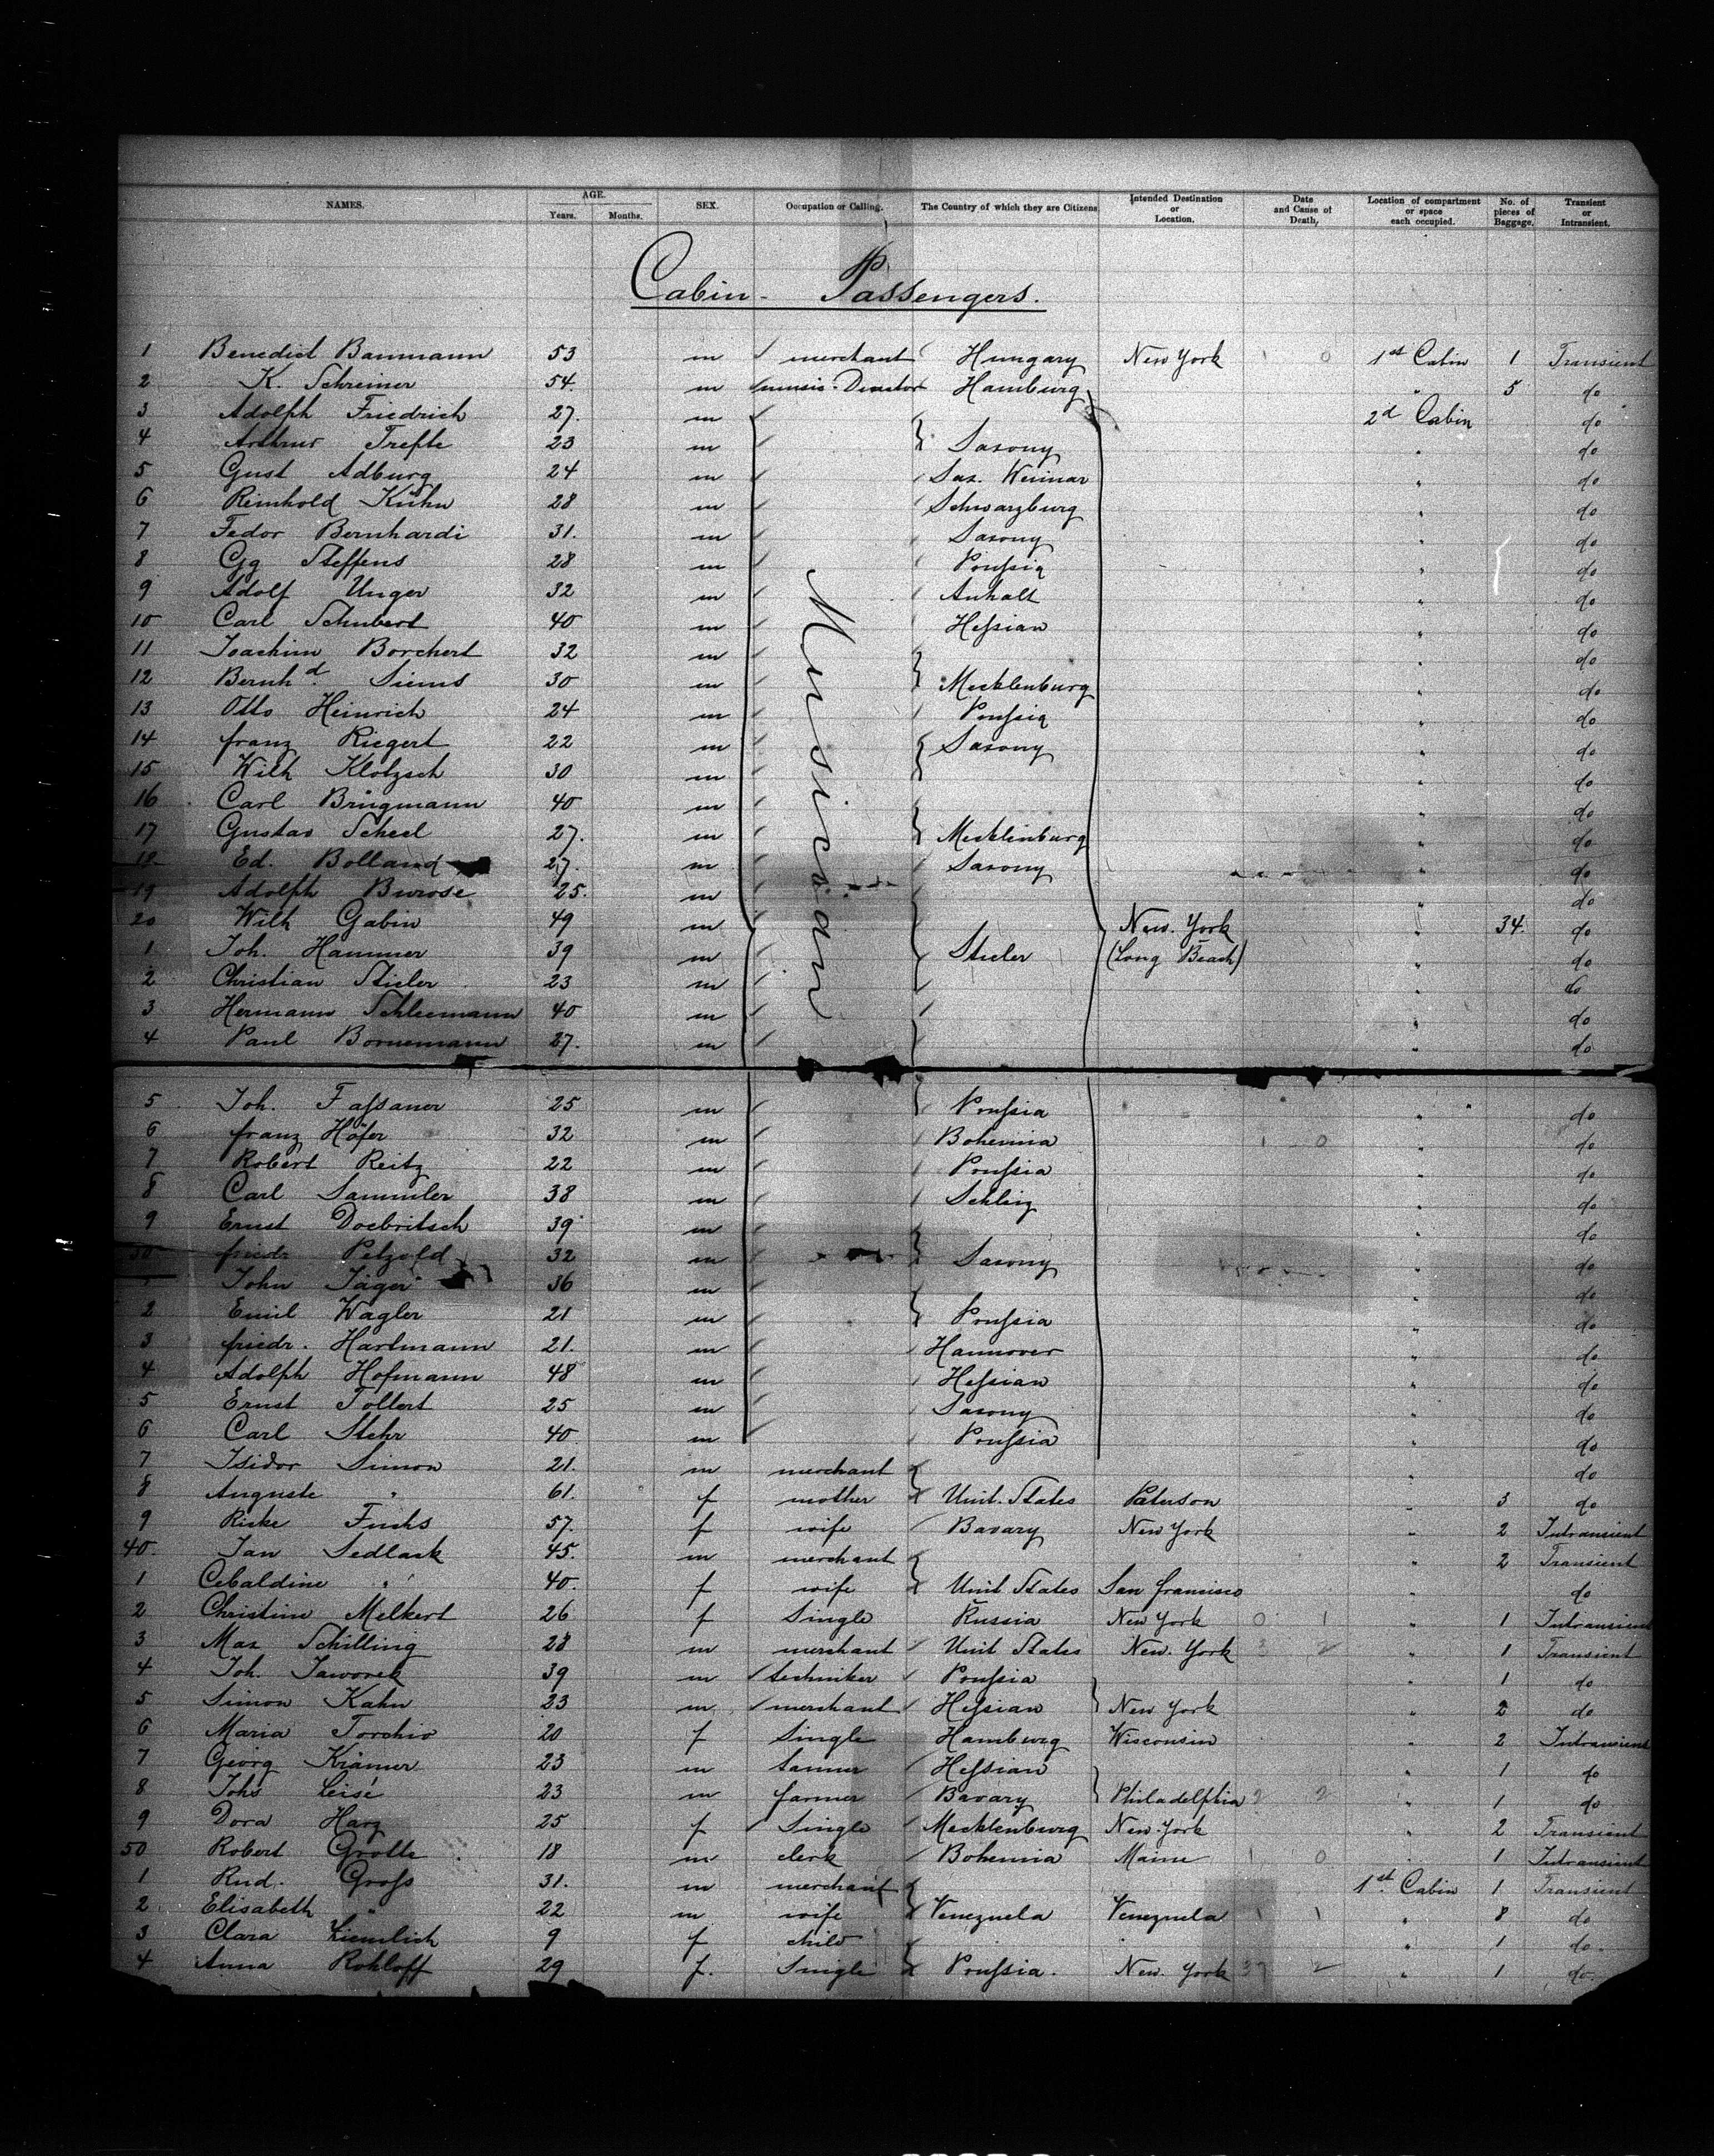 NAMES. AGE. Years. Months. SEX. Occupation or Calling. The Country of which they are Citizens Intended Destination or Location. Date and Cause of Death. Location of compartment or space each occupied. No. of pieces of Baggage. Transient or Intransient.
Cabin - Passengers.
1 Benedict Baumann 53 m merchant Hungary New York 1 0 1st Cabin 1 Transient
2 K. Schreiner 54 m music Director Hamburg " 5 do
3 Adolph Friedrich 27. m 2d Cabin do
4 Arthur Trefte 23 m Saxony " do
5 Gust Adburg 24 m Sax. Weimar " do
6 Reinhold Kühn 28 m Schwarzburg " do
7 Fedor Bernhardi 31. m Saxony " do
8 Gg Steffens 28 m Preußia " do
9 Adolf Unger 32 m Anhalt " do
10 Carl Schubert 40 m Heßian " do
11 Joachim Borchert 32 m do
12 Bernhd. Siems 30 m Mecklenburg " do
13 Otto Heinrich 24 m Preußia " do
14 franz Riegert 22 m Saxony " do
15 Wilh Klotzsch 30 m " do
16 Carl Brügmann 40 m " do
17 Gustav Scheel 27. m Mecklinburg " do
18 Ed. Bolland 27. m Saxony " do
19 Adolph Burose 25. m " do
20 Wilh Gabin 49 m New. York " 34. do
1. Joh. Hammer 39 m Stieler (Long Beach) " do
2 Christian Stieler 23 m " do
3 Hermann Schleemann 40 m " do
4 Paul Bornemann 27. m " do
Musician
5 Joh. Faßaner 25 m Preußia " do
6 franz Höfer 32 m Bohemia 1 0 " do
7 Robert Reitz 22 m Preußia " do
8 Carl Sammler 38 m Schleiz " do
9 Ernst Doebritsch 39 m do
30 friedr Petzold 32 m Saxony " do
1 John Jäger 36 m " do
2 Emil Wagler 21 m Preußia " do
3 friedr. Hartmann 21. m Hannover " do
4 Adolph Hofmann 48 m Heßian " do
5 Ernst Tollert 25 m Saxony " do
6 Carl Stehr 40 m Preußia " do
7 Isidor Simon 21. m merchant " do
8 Auguste " 61. f mother Unit. States Paterson " 3 do
9 Rieke Fuchs 57. f wife Bavary New York " 2 Intransient
40. Jan Sedlack 45. m merchant " 2 Transient
1 Cebaldine " 40. f wife Unit States San francisco " do
2 Christine Melkert 26 f Single Russia New York 0 1 " 1 Intransient
3 Max Schilling 28 m merchant Unit States New. York 3 2 " 1 Transient
4 Joh. Jaworek 39 m techniker Preußia " 1 do
5 Simon Kahn 23 m merchant Heßian New York " 2 do
6 Maria Torchio 20 f Single Hamburg Wisconsin " 2 Intransient
7 Georg Krämer 23 m tanner Heßian " 1 do
8 Johs Leise 23 m farmer Bavary Philadelphia 2 2 " 1 do
9 Dora Harz 25 f Single Mecklenburg New York " 2 Transient
50 Robert Grotte 18 m clerk Bohemia Maine 1 0 " 1 Intransient
1 Rud. Groß 31. m merchant 1st Cabin 1 Transient
2 Elisabeth " 22 m wife Venezuela Venezuela 1 1 " 8 do
3 Clara Ziemlich 9 f child " 1 do.
4 Anna Rohloff 29 f. Single Preußia. New. York 37 2 " 1 do